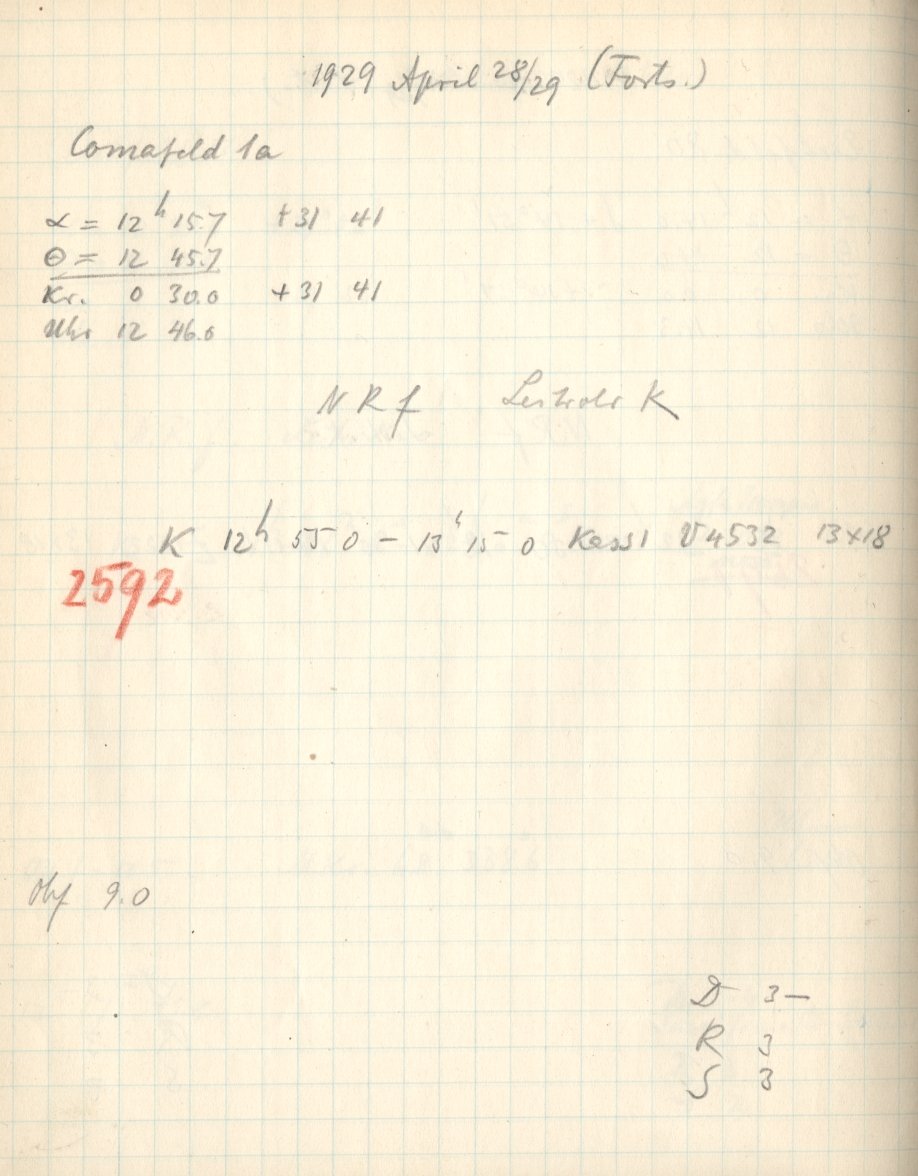 1929 April 28/29 (Forts.)
Comafeld 1a
α = 12ʰ 15.7 +31 41
Θ = 12 45.7
Kr. 0 30.0 +31 41
Uhr 12 46.0
N R f Leitrohr K
K 12ʰ 55 0 – 13ʰ 15 0 Kass1 V4532 13×18
2592
Obj 9.0
D 3–
R 3
S 3